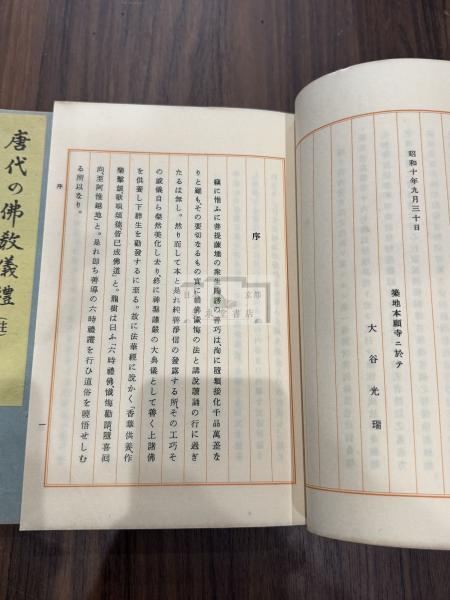 昭和十年九月三十日
築地本願寺ニ於テ
大谷光瑞
序
竊に惟ふに菩提薩埵の衆生
りと雖も、その要切なるもの實に禮佛懺悔の法と講說讀誦の行に過ぎ
たるは無し。然り而して本と是れ純善淨信の發露する所、その工巧そ
の威儀自ら粲然美化し去り、終に神聖謹嚴の大典儀として善く上諸佛
を供養し下群生を勸發するに至る。故に法華經に說かく、「香華供養、作
樂擊鼓、歌唄頌德、皆已成佛道」と。龍樹は曰ふ、「六時禮佛、懺悔勸請、隨喜回
向、至阿惟越地」と。是れ卽ち善導の六時禮讚を行ひ道俗を曉悟せしむ
る所以なり。
序
一
唐代の佛教儀禮